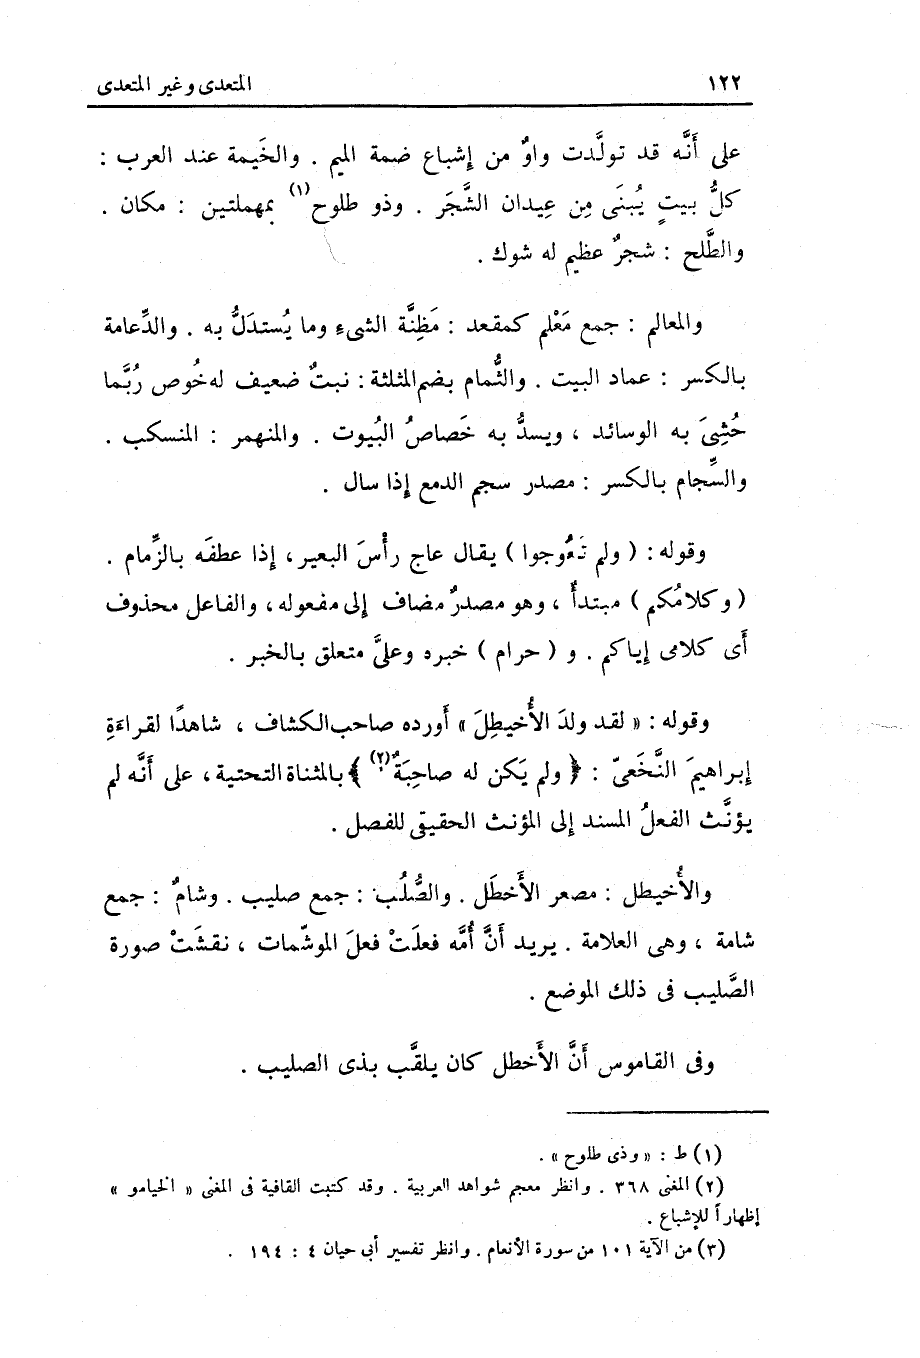 ١٢٢ المتعدى وغير المتعدى
على أَنَّه قد تولَّدت واوٌ من إشباع ضمة الميم . والخَيمة عند العرب :
كلُّ بيتٍ يُبنَى مِن عِيدان الشَّجَر . وذو طلوح(١) بمهملتين : مكان .
والطَّلح : شجرٌ عظيم له شوك .
والمعالم : جمع مَعْلم كمقعد : مَظِنَّة الشىء وما يُستدَلُّ به . والدِّعامة
بالكسر : عماد البيت . والثُّمام بضم المثلثة : نبتٌ ضعيف له خُوص رُبَّما
حُشِىَ به الوسائد ، ويسدُّ به خَصاصُ البُيوت . والمنهمر : المنسكب .
والسِّجام بالكسر : مصدر سجم الدمع إذا سال .
وقوله : ( ولم تَعُوجوا ) يقال عاج رأْسَ البعير ، إذا عطفَه بالزِّمام .
( وكلامُكم ) مبتدأٌ ، وهو مصدرٌ مضاف إلى مفعوله ، والفاعل محذوف
أى كلامى إياكم . و ( حرام ) خبره وعلىَّ متعلق بالخبر .
وقوله : « لقد ولدَ الأُخيطِلَ » أورده صاحب الكشاف ، شاهدًا لقراءَةِ
إبراهيمَ النَّخَعىّ : ﴿ ولم يَكن له صاحِبَةٌ(٢) ﴾ بالمثناة التحتية ، على أَنَّه لم
يؤنَّث الفعلُ المسند إلى المؤنث الحقيقى للفصل .
والأُخيطل : مصعر الأَخطَل . والصُّلُب : جمع صليب . وشامٌ : جمع
شامة ، وهى العلامة . يريد أَنَّ أُمَّه فعلَتْ فعلَ الموشّمات ، نقشَتْ صورة
الصَّليب فى ذلك الموضع .
وفى القاموس أَنَّ الأَخطل كان يلقَّب بذى الصليب .
(١) ط : « وذى طلوح » .
(٢) المغنى ٣٦٨ . وانظر معجم شواهد العربية . وقد كتبت القافية فى المغنى « الخيامو »
إظهاراً للإشباع .
(٣) من الآية ١٠١ من سورة الأنعام . وانظر تفسير أبى حيان ٤ : ١٩٤ .